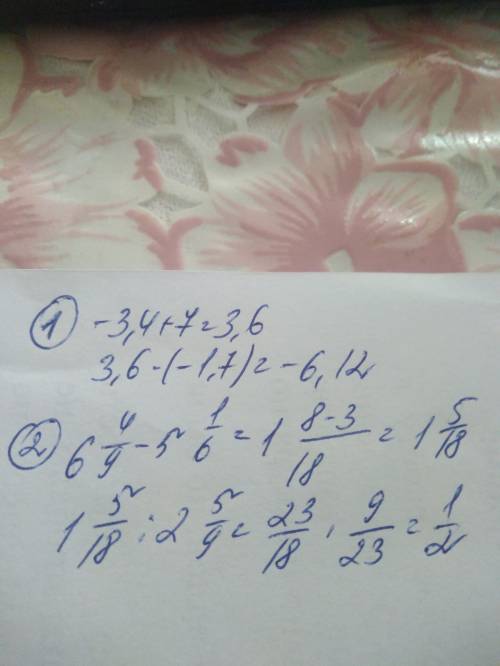 ① -3,4+7=3,6
3,6·(-1,7)=-6,12
② 6 4/9 - 5 1/6 = 1 8-3/18 = 1 5/18
1 5/18 : 2 5/9 = 23/18 · 9/23 = 1/2